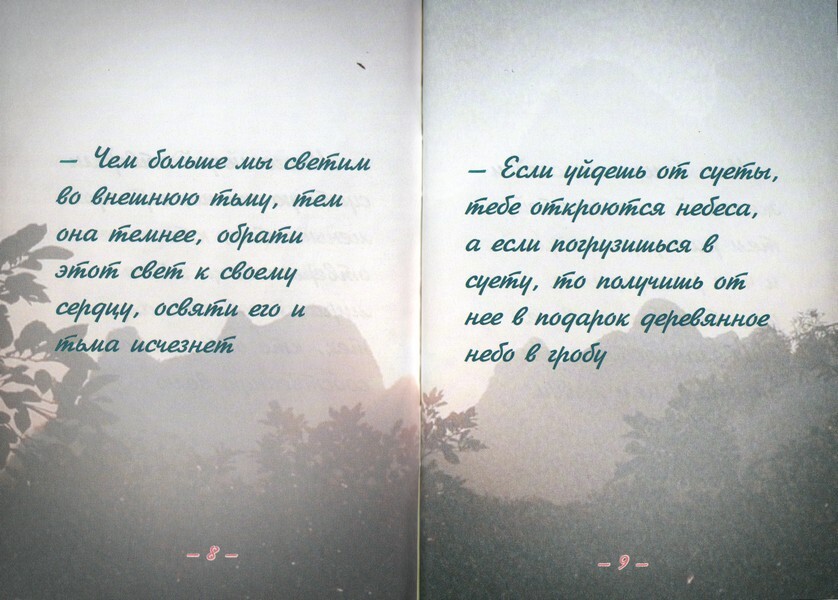 — Чем больше мы светим
во внешнюю тьму, тем
она темнее, обрати
этот свет к своему
сердцу, освяти его и
тьма исчезнет
— 8 —
— Если уйдешь от суеты,
тебе откроются небеса,
а если погрузишься в
суету, то получишь от
нее в подарок деревянное
небо в гробу
— 9 —